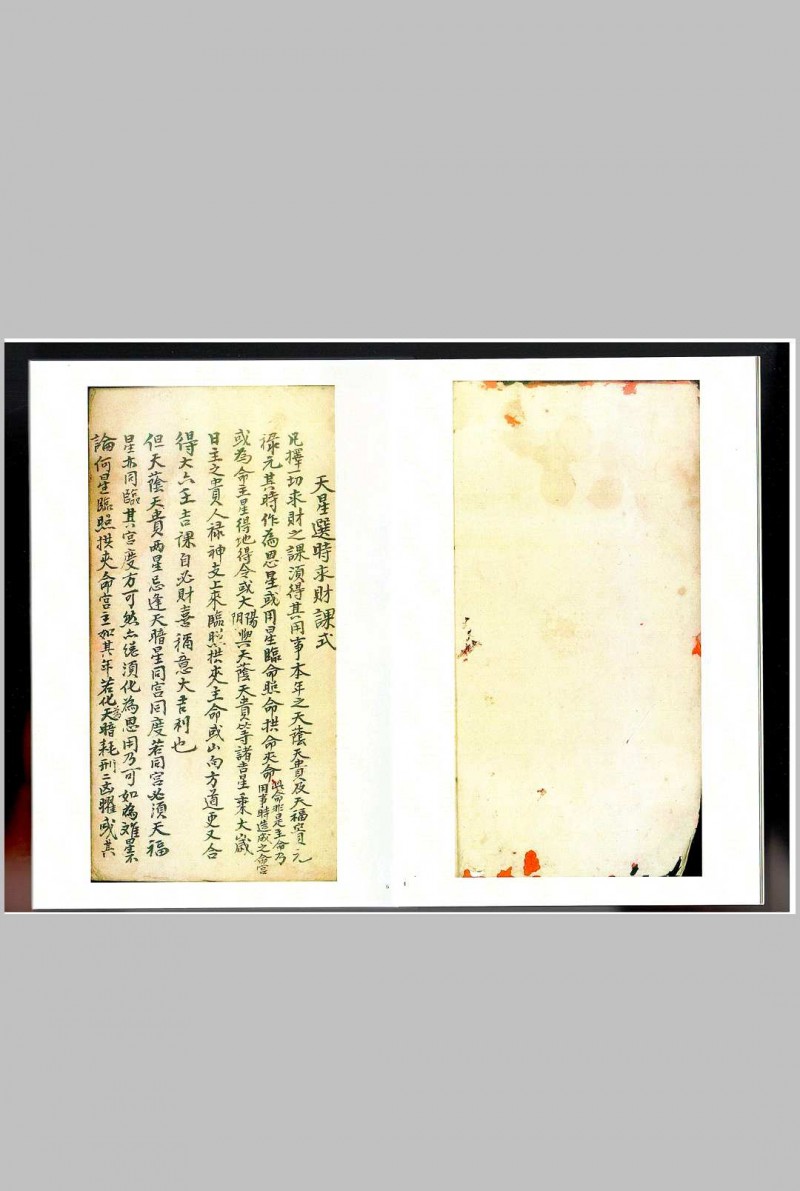 天星選時求財課式
凡擇一切求財之課須得其用事本年之天蔭天貴及天福貴元
祿元其時作為恩星或用星臨命照命拱命夾命此命非是主命乃
用事時造成之命宮
或為命主星得地得令或太陽太陰與天蔭天貴等諸吉星乘太歲
日主之貴人祿神支上來臨照拱夾主命或山向方道更又合
得大六壬吉課自必財喜稱意大吉利也
但天蔭天貴兩星忌逢天暗星同宮同度若同宮必須天福
星亦同臨其宮度方可然亦總須化為恩用乃可如為難星不
論何星臨照拱夾命宮主如其年若化為天暗耗刑二凶曜或其